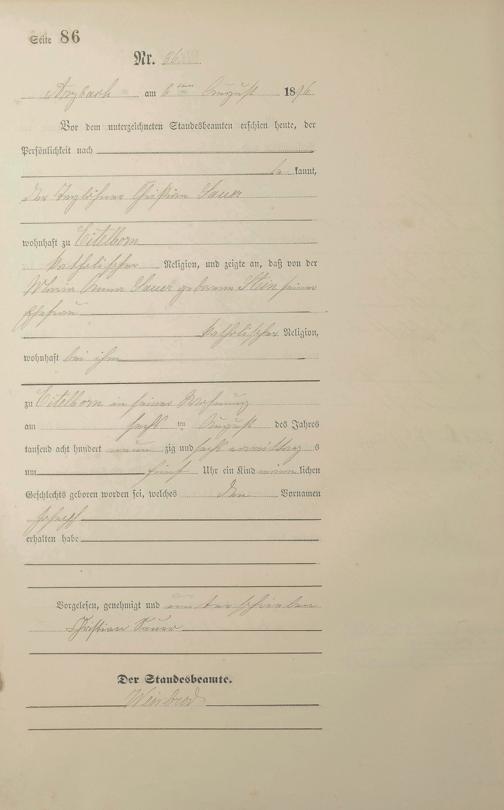 Seite 86
Nr. 86
Arzbach am 6ten August 1896
Vor dem unterzeichneten Standesbeamten erschien heute, der
Persönlichkeit nach
be kannt,
der Taglöhner Christian Sauer
wohnhaft zu Eitelborn
katholischer Religion, und zeigte an, daß von der
Maria Anna Sauer geborene seiner
Ehefrau
katholischer Religion,
wohnhaft bei ihm
zu Eitelborn in seiner Wohnung
am sechsten August des Jahres
tausend acht hundert neun zig und sechs vormittag s
um fünf Uhr ein Kind männ lichen
Geschlechts geboren worden sei, welches den Vornamen
Joseph
erhalten habe
Vorgelesen, genehmigt und unterschrieben
Christian Sauer
Der Standesbeamte.